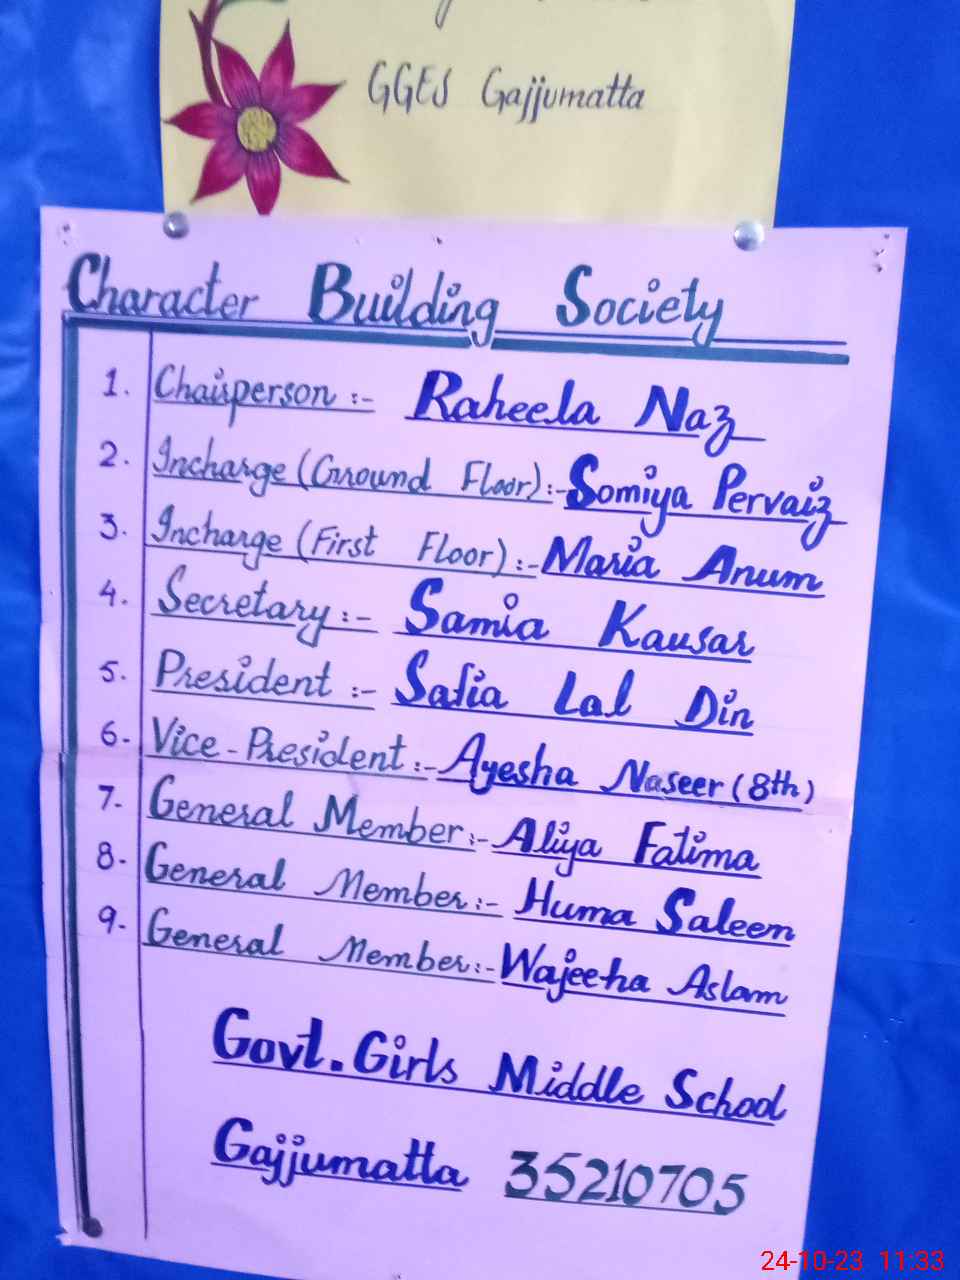 GGES Gajjumatta
Character Building Society
1. Chairperson :- Raheela Naz
2. Incharge (Ground Floor) :- Somiya Pervaiz
3. Incharge (First Floor) :- Maria Anum
4. Secretary :- Samia Kausar
5. President :- Safia Lal Din
6. Vice-President :- Ayesha Naseer (8th)
7. General Member :- Aliya Fatima
8. General Member :- Huma Saleem
9. General Member :- Wajeeha Aslam
Govt. Girls Middle School
Gajjumatta 35210705
24-10-23 11:33